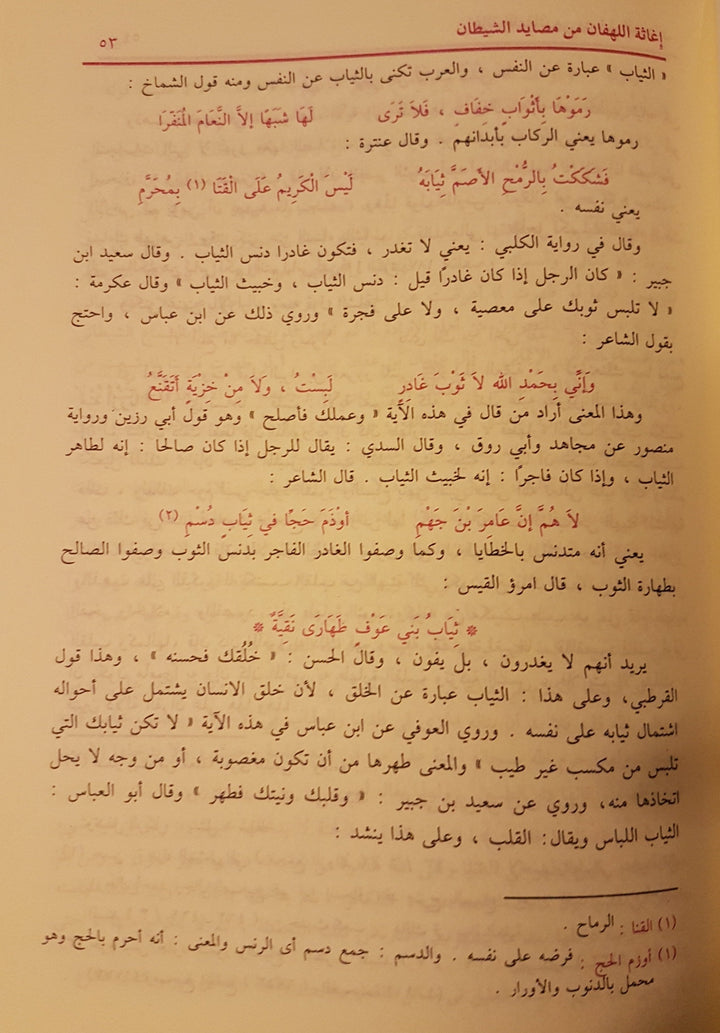 إغاثة اللهفان من مصايد الشيطان
٥٣
« الثياب » عبارة عن النفس ، والعرب تكنى بالثياب عن النفس ومنه قول الشماخ :
رَمَوْهَا بِأَثْوَابٍ خِفَافٍ ، فَلاَ تَرَى لَهَا شَبَهًا إلاَّ النَّعَامَ الْمُنَفَّرَا
رموها يعني الركاب بأبدانهم . وقال عنترة :
فَشَكَكْتُ بِالرُّمْحِ الأَصَمِّ ثِيَابَهُ لَيْسَ الْكَرِيمُ عَلَى الْقَنَا (١) بِمُحَرَّمِ
يعني نفسه .
وقال في رواية الكلبي : يعني لا تغدر ، فتكون غادرا دنس الثياب . وقال سعيد ابن
جبير : « كان الرجل إذا كان غادرًا قيل : دنس الثياب ، وخبيث الثياب » وقال عكرمة :
« لا تلبس ثوبك على معصية ، ولا على فجرة » وروي ذلك عن ابن عباس ، واحتج
بقول الشاعر :
وَإنِّي بِحَمْدِ الله لاَ ثَوْبَ غَادِرٍ لَبِسْتُ ، وَلاَ مِنْ خِزْيَةٍ أَتَقَنَّعُ
وهذا المعنى أراد من قال في هذه الآية « وعملك فأصلح » وهو قول أبي رزين ورواية
منصور عن مجاهد وأبي روق ، وقال السدي : يقال للرجل إذا كان صالحا : إنه لطاهر
الثياب ، وإذا كان فاجرًا : إنه لخبيث الثياب . قال الشاعر :
لاَ هُمَّ إنَّ عَامِرَ بْنَ جَهْمِ أوْذَمَ حَجًّا في ثِيَابٍ دُسْمِ (٢)
يعني أنه متدنس بالخطايا ، وكما وصفوا الغادر الفاجر بدنس الثوب وصفوا الصالح
بطهارة الثوب ، قال امرؤ القيس :
* ثِيَابُ بَنِي عَوْفٍ طَهَارَى نَقِيَّةٌ *
يريد أنهم لا يغدرون ، بل يفون ، وقال الحسن : « خُلُقك فحسنه » ، وهذا قول
القرطبي، وعلى هذا : الثياب عبارة عن الخلق ، لأن خلق الانسان يشتمل على أحواله
اشتمال ثيابه على نفسه . وروي العوفي عن ابن عباس في هذه الآية « لا تكن ثيابك التي
تلبس من مكسب غير طيب » والمعنى طهرها من أن تكون مغصوبة ، أو من وجه لا يحل
اتخاذها منه، وروي عن سعيد بن جبير : « وقلبك ونيتك فطهر » وقال أبو العباس :
الثياب اللباس ويقال: القلب ، وعلى هذا ينشد :
(١) القنا : الرماح .
(١) أوزم الحج : فرضه على نفسه . والدسم : جمع دسم أى الرنس والمعنى : أنه أحرم بالحج وهو
محمل بالذنوب والأورار .